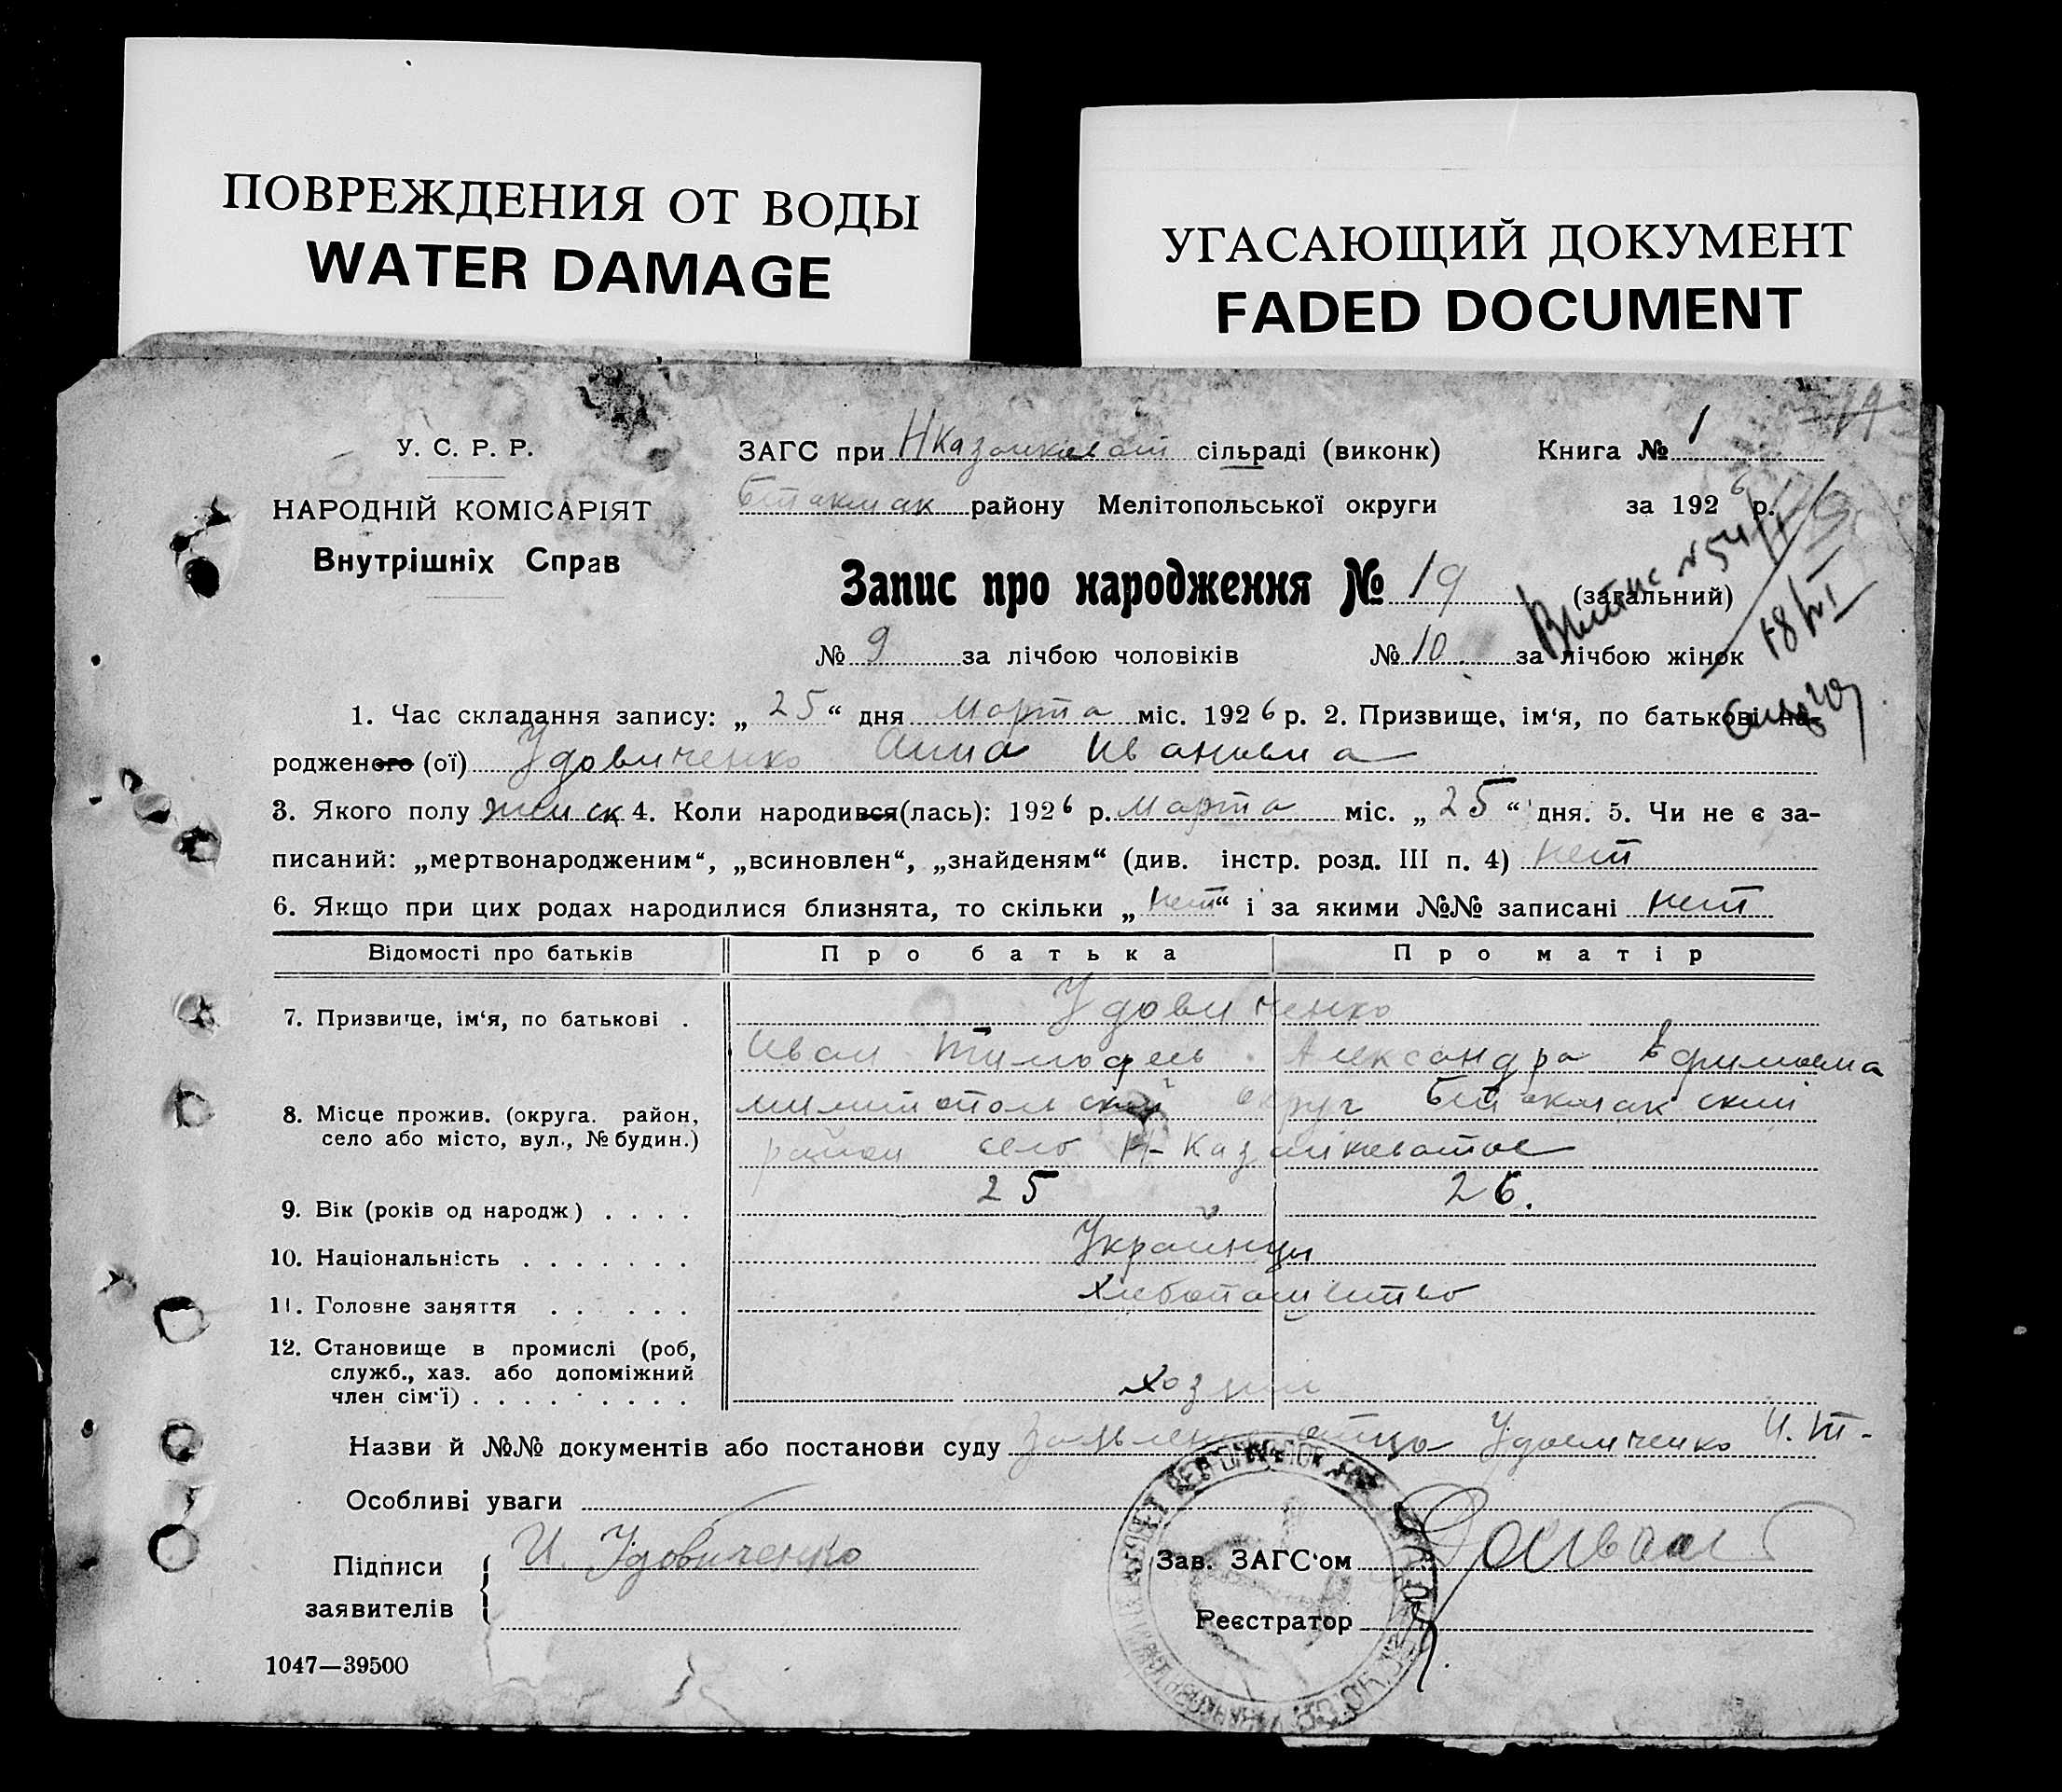 ПОВРЕЖДЕНИЯ ОТ ВОДЫ
WATER DAMAGE
УГАСАЮЩИЙ ДОКУМЕНТ
FADED DOCUMENT
У. С. Р. Р.
НАРОДНІЙ КОМІСАРІЯТ
Внутрішніх Справ
ЗАГС при сільраді (виконк)
Бтокмак району Мелітопольської округи
Книга № 1
за 1926 р.
Запис про народження № 19 (загальний)
№ 9 за лічбою чоловіків № 10 за лічбою жінок
Выпис 18/VI
1. Час складання запису: „25“ дня Марта міс. 1926 р. 2. Призвище, ім‘я, по батькові на-
родженого (ої) Удовиченко Анна Ивановна
3. Якого полу женск 4. Коли народився(лась): 1926 р. марта міс. „25“ дня. 5. Чи не є за-
писаний: „мертвонародженим“, „всиновлен“, „знайденям“ (див. інстр. розд. III п. 4) нет
6. Якщо при цих родах народилися близнята, то скільки „нет“ і за якими №№ записані нет
Відомості про батьків Про батька Про матір
7. Призвище, ім‘я, по батькові . Удовиченко
Иван Тимофеев. Александра Ефимовна
8. Місце прожив. (округа. район,
село або місто, вул., № будин.)
милитопольский округ Бтокмакский
район село Н-Казанкеватое
9. Вік (років од народж) . . . . 25 26.
10. Національність . . . . . . . Украинцы
11. Головне заняття . . . . . . хлебопашество
12. Становище в промислі (роб,
служб., хаз. або допоміжний
член сім‘ї) . . . . . . . . . хозяин
Назви й №№ документів або постанови суду заявление отца Удовиченко И. Т.
Особливі уваги
Підписи
заявителів
И. Удовиченко
Зав. ЗАГС‘ом
Реєстратор
1047—39500